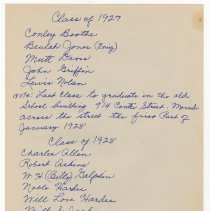 Class of 1927
Conley Boothe
Beulah Jones (Eng)
Mutt Davis
John Griffin
Lewis Nolan
Note: Last Class to graduate in the old
School building 914 Center Street. Moved
across the street the first Part of
January 1928
Class of 1928
Charles Allen
Robert Askins
W. H. (Bity) Galphin
Noble Hardee
Will Love Hardee